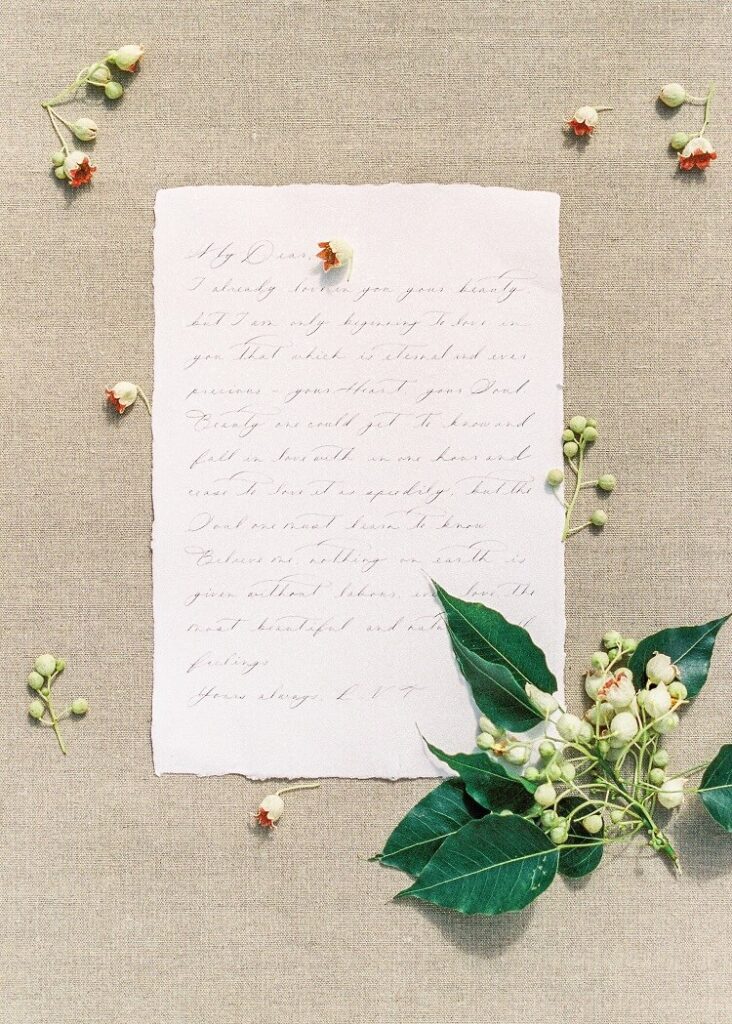 My Dear,
I already love in you your beauty,
but I am only beginning to love in
you that which is eternal and ever
precious – your Heart, your Soul.
Beauty one could get to know and
fall in love with in one hour and
cease to love it as speedily; but the
Soul one must learn to know.
Believe me, nothing on earth is
given without labour, even love, the
most beautiful and
feelings
Yours always, L. N. T.